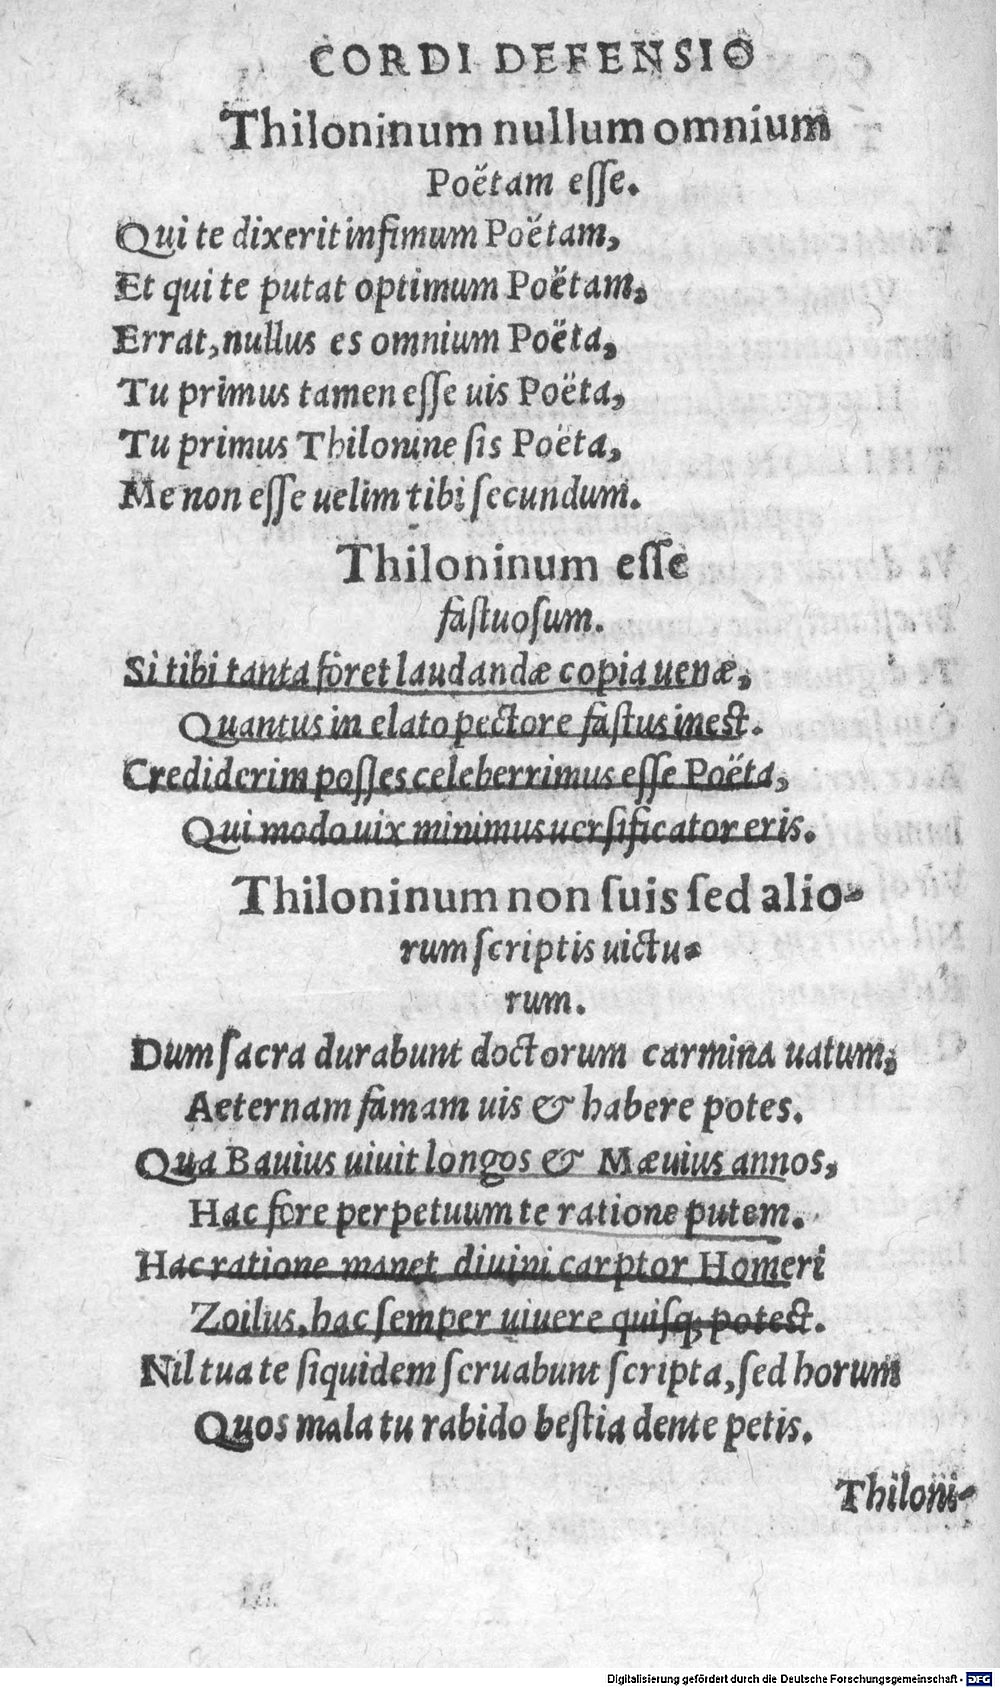 CORDI DEFENSIO
Thiloninum nullum omnium
Poëtam eſſe.
Qui te dixerit infimum Poëtam,
Et qui te putat optimum Poëtam,
Errat, nullus es omnium Poëta,
Tu primus tamen eſſe uis Poëta,
Tu primus Thilonine ſis Poëta,
Me non eſſe uelim tibi ſecundum.
Thiloninum eſſe
faſtuoſum.
Si tibi tanta foret laudandæ copia uenæ,
Quantus in elato pectore faſtus ineſt.
Crediderim poſſes celeberrimus eſſe Poëta,
Qui modo uix minimus uerſificator eris.
Thiloninum non ſuis ſed alio-
rum ſcriptis uictu-
rum.
Dum ſacra durabunt doctorum carmina uatum,
Aeternam famam uis & habere potes.
Qua Bauius uiuit longos & Mæuius annos,
Hac fore perpetuum te ratione putem.
Hac ratione manet diuini carptor Homeri
Zoilus, hac ſemper uiuere quiſq; poteſt.
Nil tua te ſiquidem ſeruabunt ſcripta, ſed horum
Quos mala tu rabido beſtia dente petis.
Thiloni-
Digitalisierung gefördert durch die Deutsche Forschungsgemeinschaft - DFG